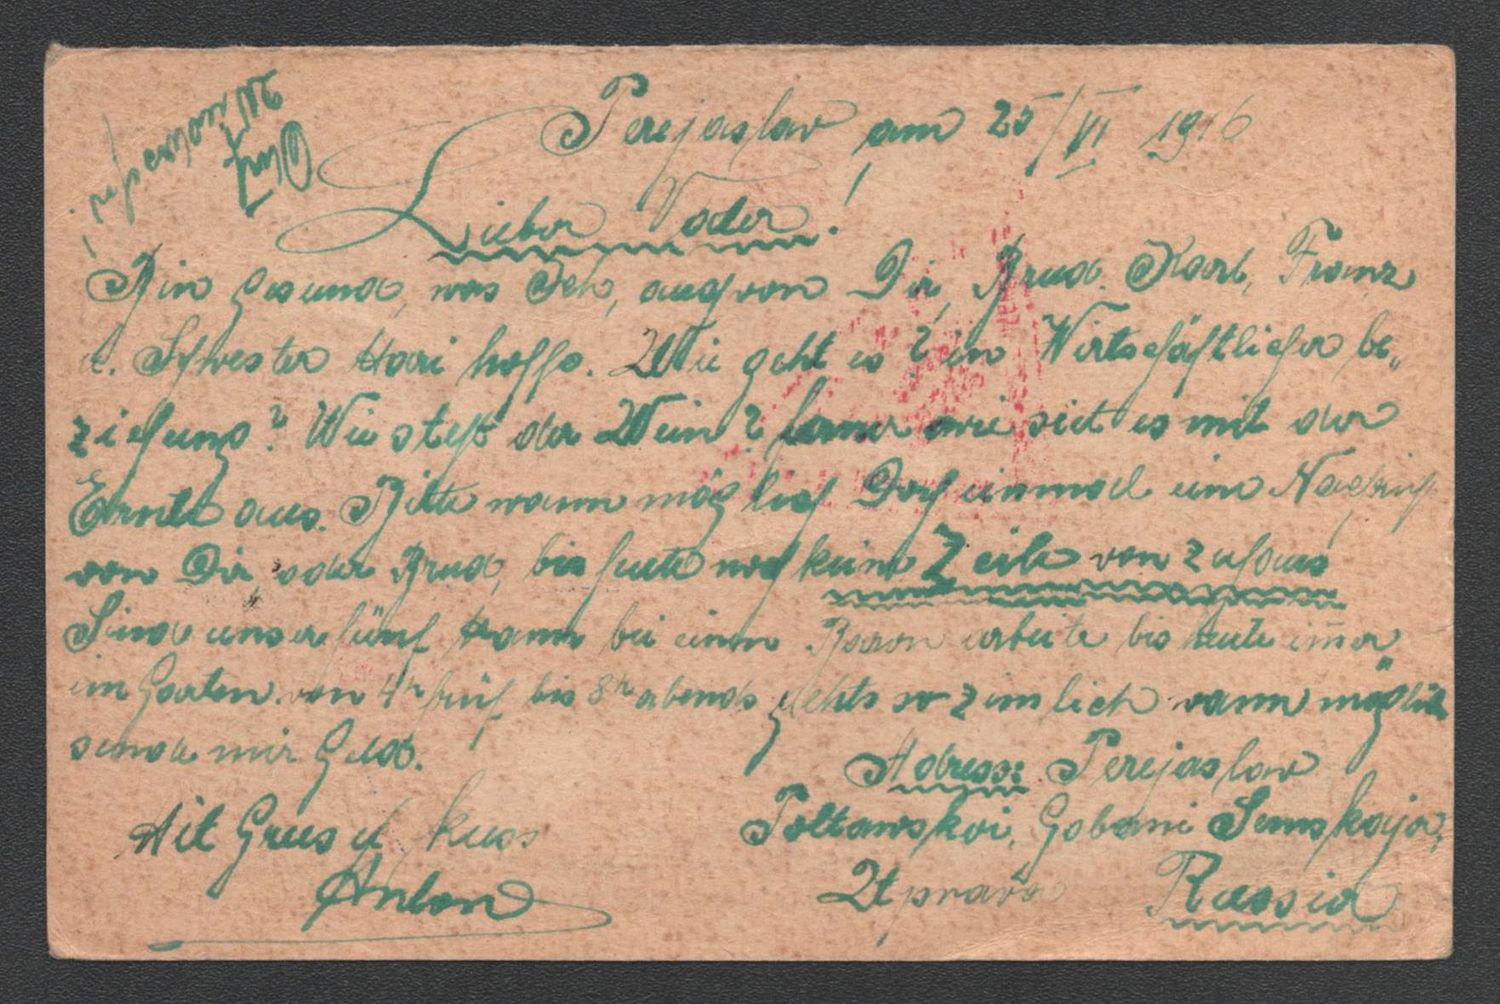 Perejaslav, am 25/VI 1916
Lieber Vader!
Bin gesund, was Ich, auch von Dir, Brud. Karl, Franz
u. Schwester Mari hoffe. Wie geht es? in Wirtschäftlicher be-
ziehung? Wie steht der Wein? ferner wie sict es mit der
Ernte aus. Bitte wann möglich Doch einmal eine Nachricht
von Dir, oder Brud, bis heute noch keine Zeile von zuhaus
Sind unser fünf Mann bei einem Baron arbeite bis heute im̄er
im Garten von 4h früh bis 8h abends gehts so zimlich wann möglich
sende mir Geld.
Adress: Perejaslav
Mit Grus u kuss
Poltawskoi, Gobarni Semskaja,
Anton
Uprava Russia